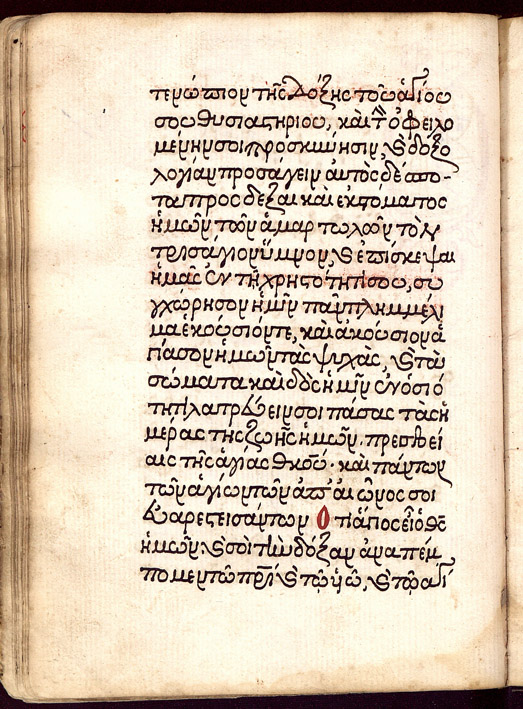 τενώπιον τῆς δόξης τοῦ ἁγίου
σου θυσιαστηρίου, καὶ τ̑ ὀφειλο
μένην σοι προσκύνησιν, κ̀ δοξο
λογίαν προσάγειν αὐτὸς δέσπο-
τα πρόσδεξαι καὶ ἐκ στόματος
ἡμῶν τῶν ἁμαρτωλῶν τὸν
τρισάγιον ὕμνον, κ̀ ἐπίσκεψαι
ἡμᾶς ἐν τῆ χρηστότητί σου, συ
γχώρησον ἡμῖν πᾶν πλημμέλη
μα ἑκούσιόν τε, καὶ ἀκούσιον ἁ
γίασον ἡμῶν τὰς ψυχὰς, κ̀ τὰ
σώματα καὶ δὸς ἡμῖν ἐν ὁσιό
τητι λατρεύειν σοι πάσας τὰς ἡ
μέρας τῆς ζωῆς ἡμῶν. πρεσβεί
αις τῆς ἁγίας θκου· καὶ πάντων
τῶν ἁγίων τῶν ἀπ' αἰῶνος σοι
εὐαρεστεισάντων Ὅτι ἅγιος εἶ ὁ θς
ἡμῶν. κ̀ σοὶ τὴν δόξαν ἀναπέμ
πομεν τῶ πρὶ κ̀ τῶ υἱῶ, κ̀ τῶ ἁγί